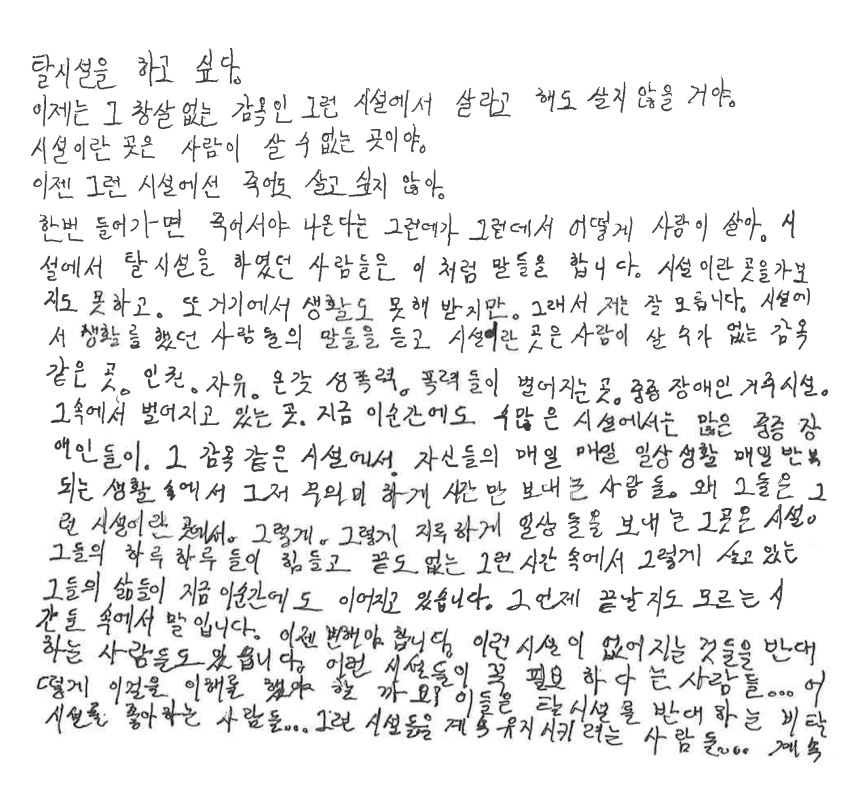 탈시설을 하고 싶다.
이제는 그 창살없는 감옥인 그런 시설에서 살라고 해도 살지 않을 거야.
시설이란 곳은 사람이 살 수 없는 곳이야.
이젠 그런 시설에선 죽어도 살고 싶지 않아.
한번 들어가면 죽어서야 나온다는 그런데가 그런데서 어떻게 사람이 살아. 시
설에서 탈시설을 하였던 사람들은 이 처럼 말들을 합니다. 시설이란 곳을가보
지도 못하고. 또 거기에서 생활도 못해 받지만. 그래서 저는 잘 모릅니다. 시설에
서 생활를 했던 사람들의 말들을 듣고 시설이란 곳은 사람이 살 수가 없는 감옥
같은 곳. 인권. 자유. 온갖 성폭력. 폭력들이 벌어지는 곳. 중증 장애인 거주시설.
그속에서 벌어지고 있는 곳. 지금 이순간에도 수많은 시설에서는 많은 중증 장
애인들이. 그 감옥 같은 시설에서 자신들의 매일 매일 일상생활 매일 반복
되는 생활 속에서 그저 무의미 하게 시간만 보내는 사람들. 왜 그들은 그
런 시설이란 곳에서. 그렇게. 그렇게 지루하게 일상들을 보내는 그곳은 시설이
그들의 하루 하루들이 힘들고 끝도 없는 그런 시간 속에서 그렇게 살고 있는
그들의 삶들이 지금 이순간에도 이어지고 있습니다. 그 언제 끝날지도 모르는 시
간들 속에서 말입니다. 이젠 변해야 합니다. 이런 시설이 없어지는 것들을 반대
하는 사람들도 있습니다. 이런 시설들이 꼭 필요 하다는 사람들... 어
떻게 이걸을 이해를 했야 할 까요? 이들은 탈시설를 반대하는 비탈
시설를 좋아하는 사람들... 그런 시설들을 계속 유지시키려는 사람들... 계속